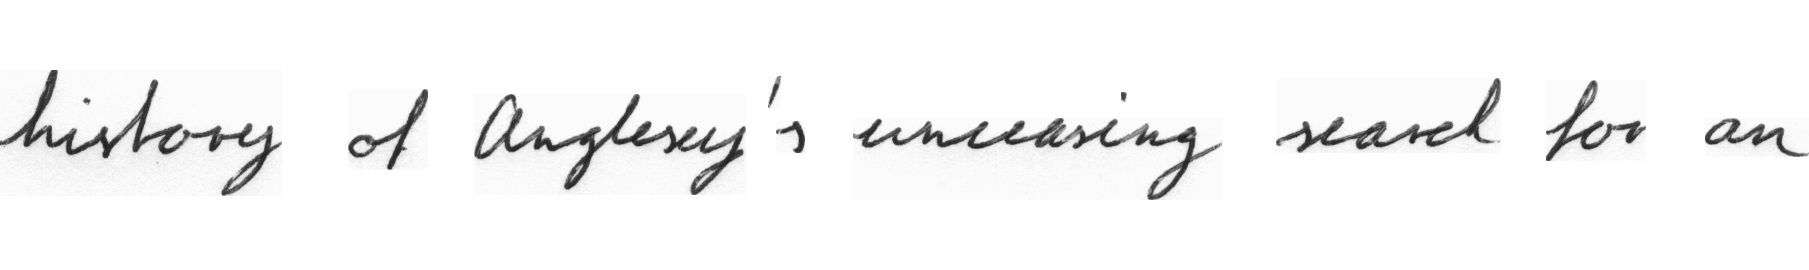 history of Anglesey's unceasing search for an